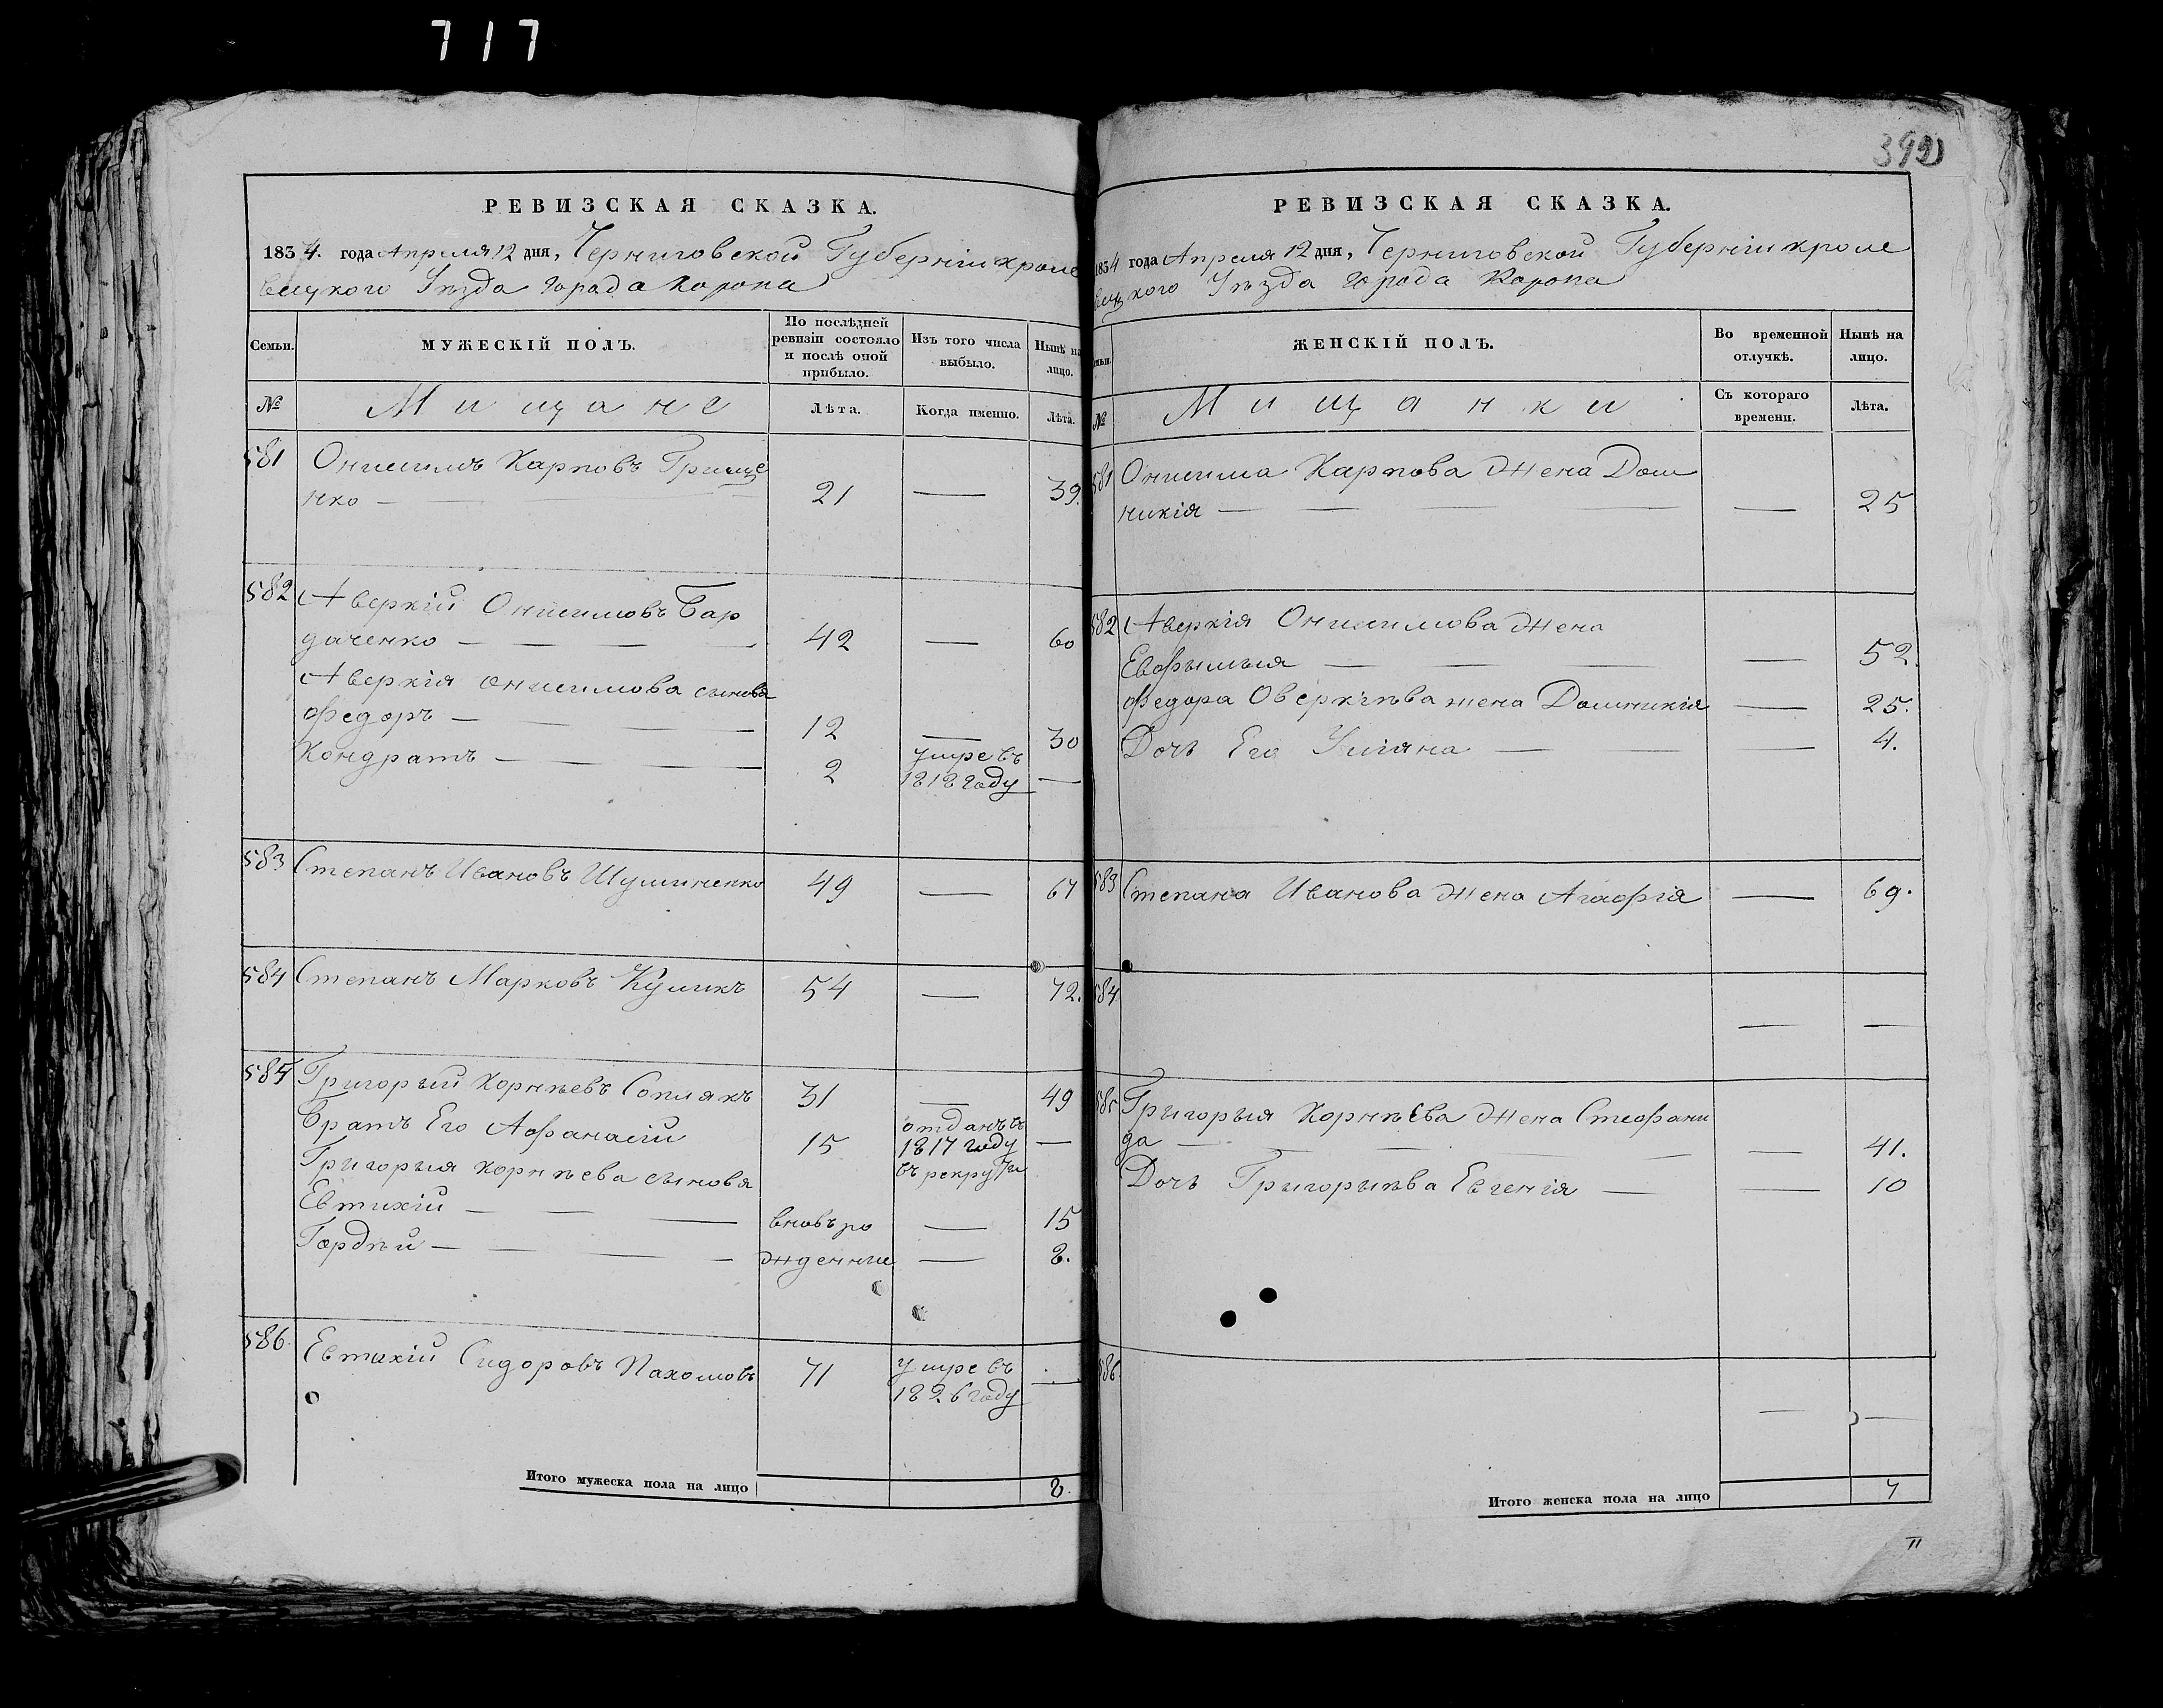 717
392
РЕВИЗСКАЯ СКАЗКА.
1834. года Апреля 12 дня, Черниговской Губерніи Кроле
вецкого Уезда Города Коропа
Семьи.
МУЖЕСКІЙ ПОЛЪ.
По послѣдней ревизіи состояло и послѣ оной прибыло.
Изъ того числа выбыло.
Нынѣ на лицо.
№
Мищане
Лѣта.
Когда именно.
Лѣта.
581 Онисимъ Карповъ Грище
нко — 21 — 39.
582 Аверкій Онисимовъ Бар
даченко — 42 — 60
Аверкія Онисимова сыновя
Федоръ — 12 — 30
Кондратъ — 2 умре въ
1818 году —
583 Степанъ Ивановъ Шулиненко 49 — 67
584 Степанъ Марковъ Куликъ 54 — 72.
585 Григорый Корнѣевъ Соплякъ 31 — 49
Братъ Его Афанасій 15 отданъ въ
1817 году —
въ рекруты
Григорыя Корнѣева сыновя
Евтихій — вновъ ро — 15
Гордѣй — жденные — 8.
586. Евтихій Сидоровъ Пахомовъ 71 умре въ
1826 году —
Итого мужеска пола на лицо 8.
РЕВИЗСКАЯ СКАЗКА.
1834 года Апреля 12 дня, Черниговской Губерніи Кроле
вецкого Уѣзда Города Коропа
ЖЕНСКІЙ ПОЛЪ.
Во временной отлучкѣ.
Нынѣ на лицо.
№
Мищанки
Съ котораго времени.
Лѣта.
581 Онисима Карпова жена Дом
никія — — 25
582 Аверкія Онисимова жена
Евфымыя — — 52.
Федора Оверкіѣва жена Домникія — 25.
Дочь Его Уліяна — — 4.
583 Степана Иванова жена Агафія — 69.
584 — —
585 Григорыя Корнѣева жена Стефани
да — — 41.
Дочь Григорыѣва Евгенія — — 10
586. — —
Итого женска пола на лицо 7